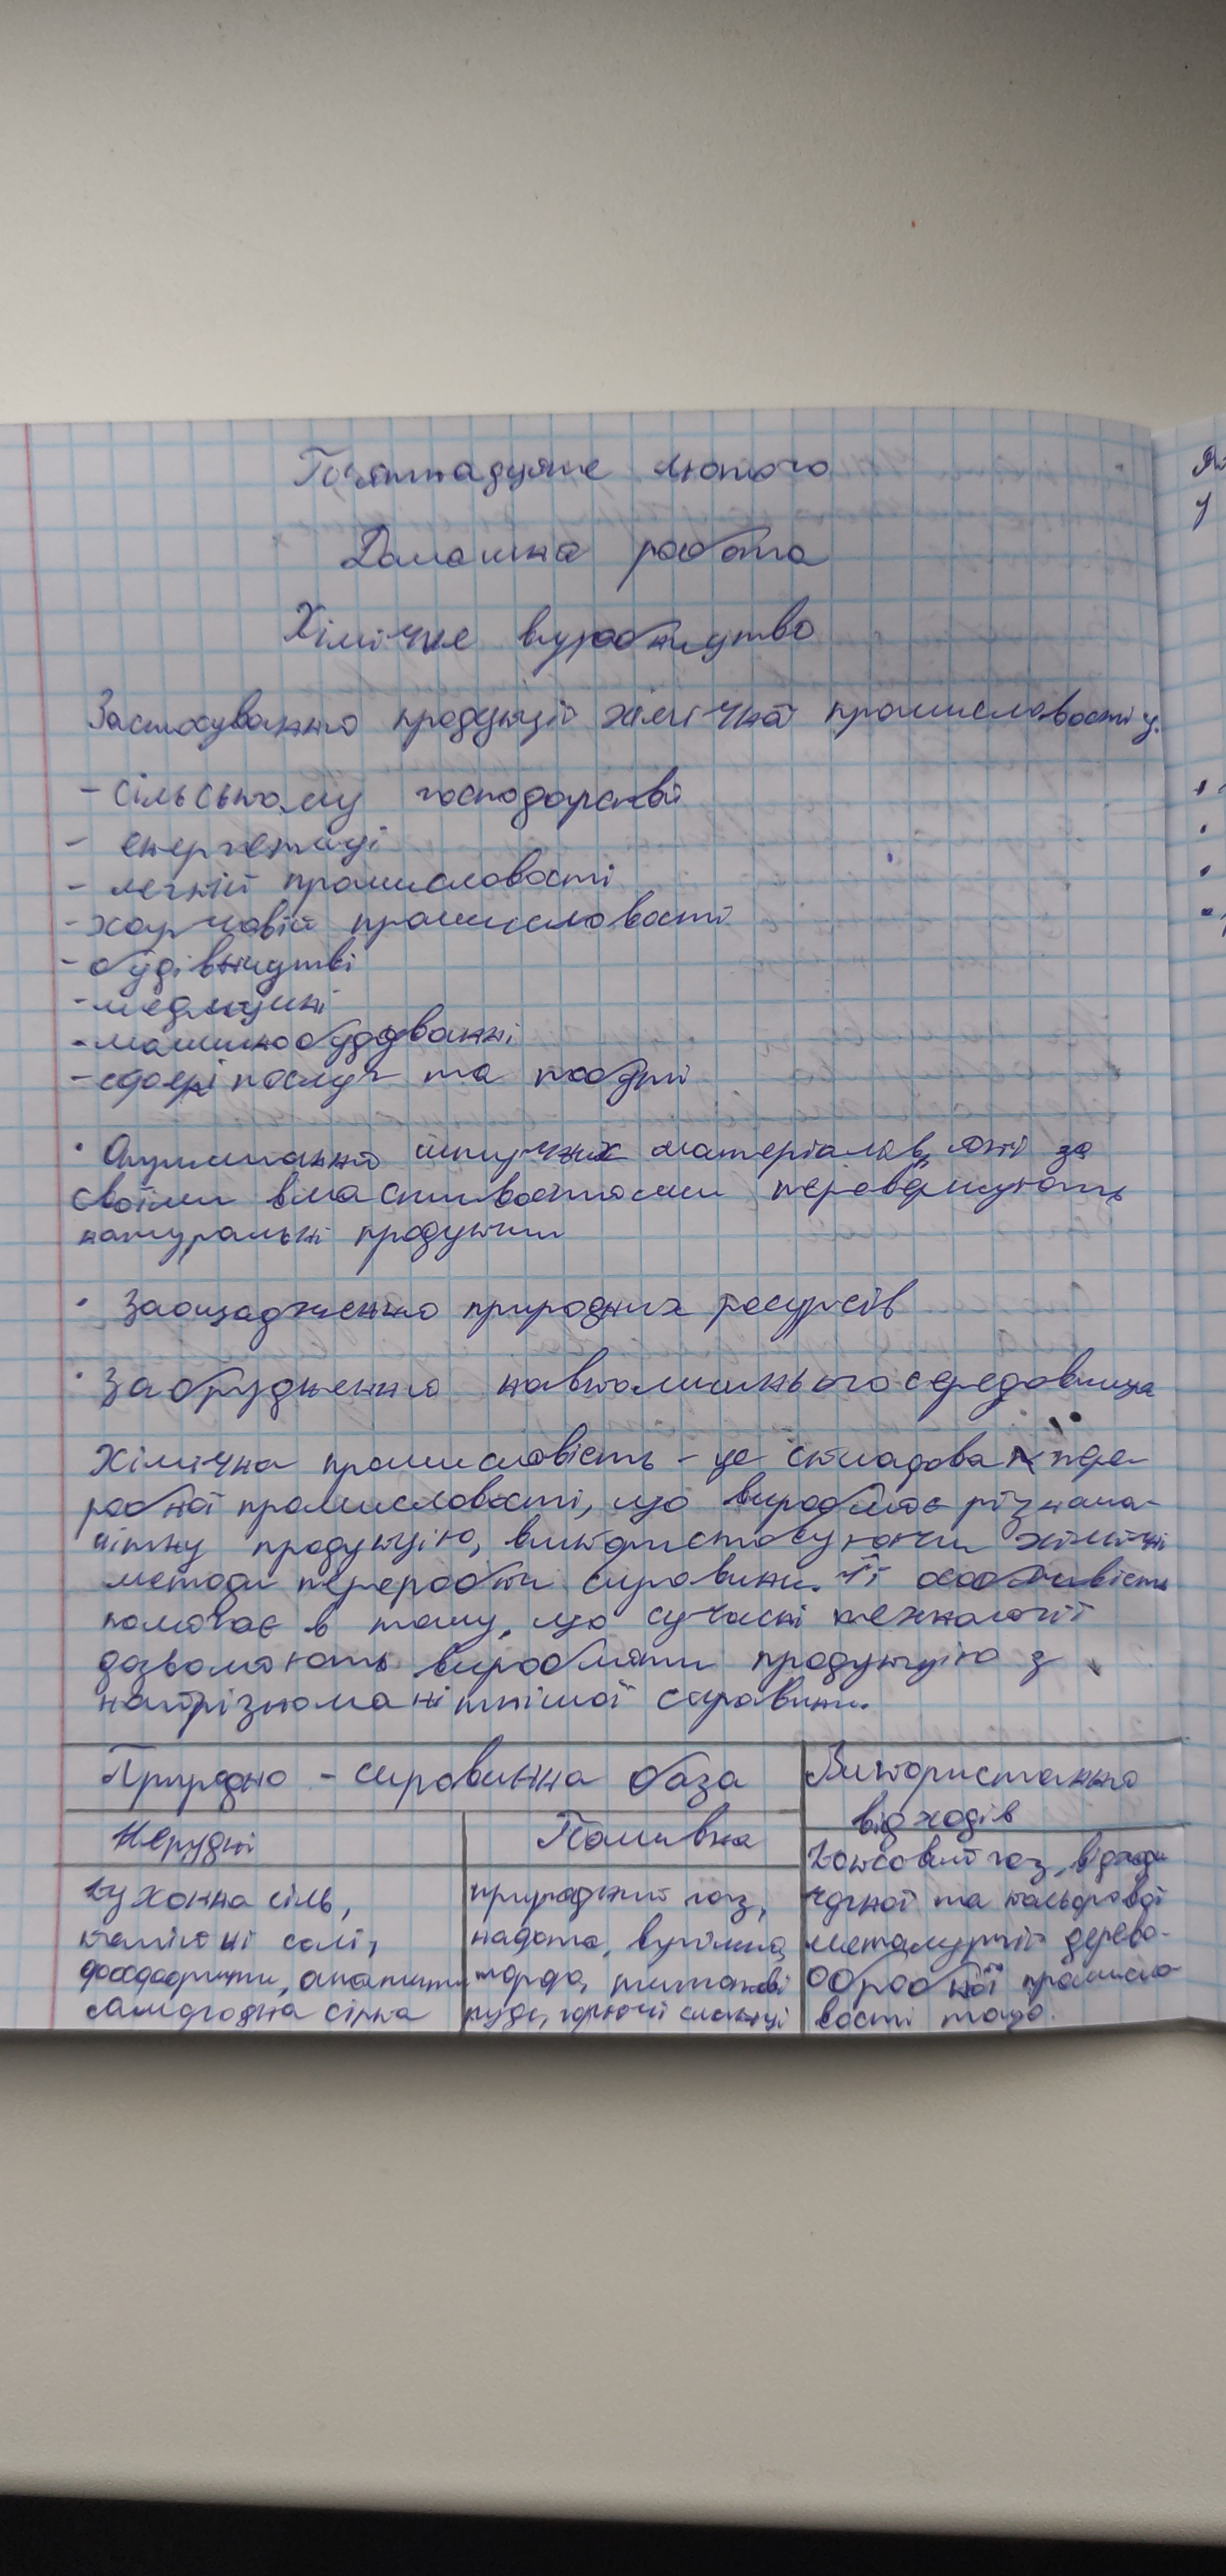 П'ятнадцяте лютого
Домашня робота
Хімічне виробництво
Застосування продукції хімічної промисловості у:
- сільському господарстві
- енергетиці
- легкій промисловості
- харчовій промисловості
- будівництві
- медицині
- машинобудуванні
- сфері послуг та побуті
• Отримання штучних матеріалів, які за
своїми властивостями перевершують
натуральні продукти
• Заощадження природних ресурсів
• Забруднення навколишнього середовища
Хімічна промисловість - це складова пере-
робної промисловості, що виробляє різнома-
нітну продукцію, використовуючи хімічні
методи переробки сировини. Її особливість
полягає в тому, що сучасні технології
дозволяють виробляти продукцію з
найрізноманітнішої сировини.
Природно - сировинна база
Використання
відходів
Нерудні
Паливна
кухонна сіль,
калійні солі,
фосфорити, апатити
самородна сірка
природний газ,
нафта, вугілля,
торф, титанові
руди, горючі сланці
Коксовий газ, відходи
чорної та кольорової
металургії дерево-
обробної промисло-
вості тощо.